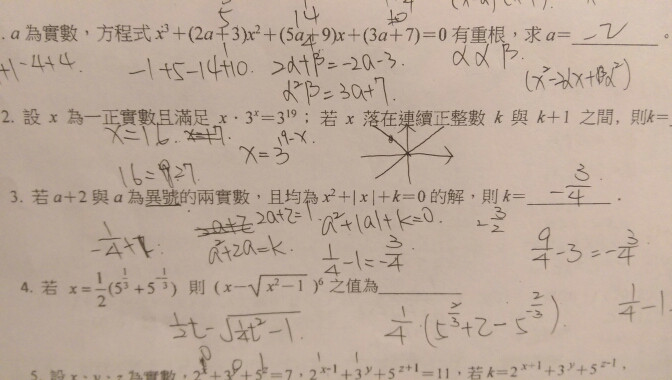 5 14 10
. a 為實數，方程式 x³+(2a+3)x²+(5a+9)x+(3a+7)=0 有重根，求 a= -2 。
+1-4+4. -1+5-14+10. 2α+β=-2a-3. α α β
α²β=3a+7. (x²-2αx+α²)
2. 設 x 為一正實數且滿足 x·3ˣ=3¹⁹；若 x 落在連續正整數 k 與 k+1 之間, 則k=
x=16 x=17.
x=3^(19-x)
16= 27.
3. 若 a+2 與 a 為異號的兩實數，且均為 x²+|x|+k=0 的解，則 k= -3/4 .
a+2 2a+2=1. a²+|a|+k=0. -3/2
-1/4+k a²+2a=k. 1/4-1=-3/4 9/4-3=-3/4
4. 若 x=1/2(5^(1/3)+5^(-1/3)) 則 (x-√(x²-1))⁶ 之值為
1/2t-√(1/4t²-1) 1/4(5^(2/3)+2-5^(-2/3)) 1/4-1
0 1
5. 設 x、y、z 為實數，2ˣ+3ʸ+5ᶻ=7，2ˣ⁻¹+3ʸ+5ᶻ⁺¹=11，若 k=2ˣ⁺¹+3ʸ+5ᶻ⁻¹，